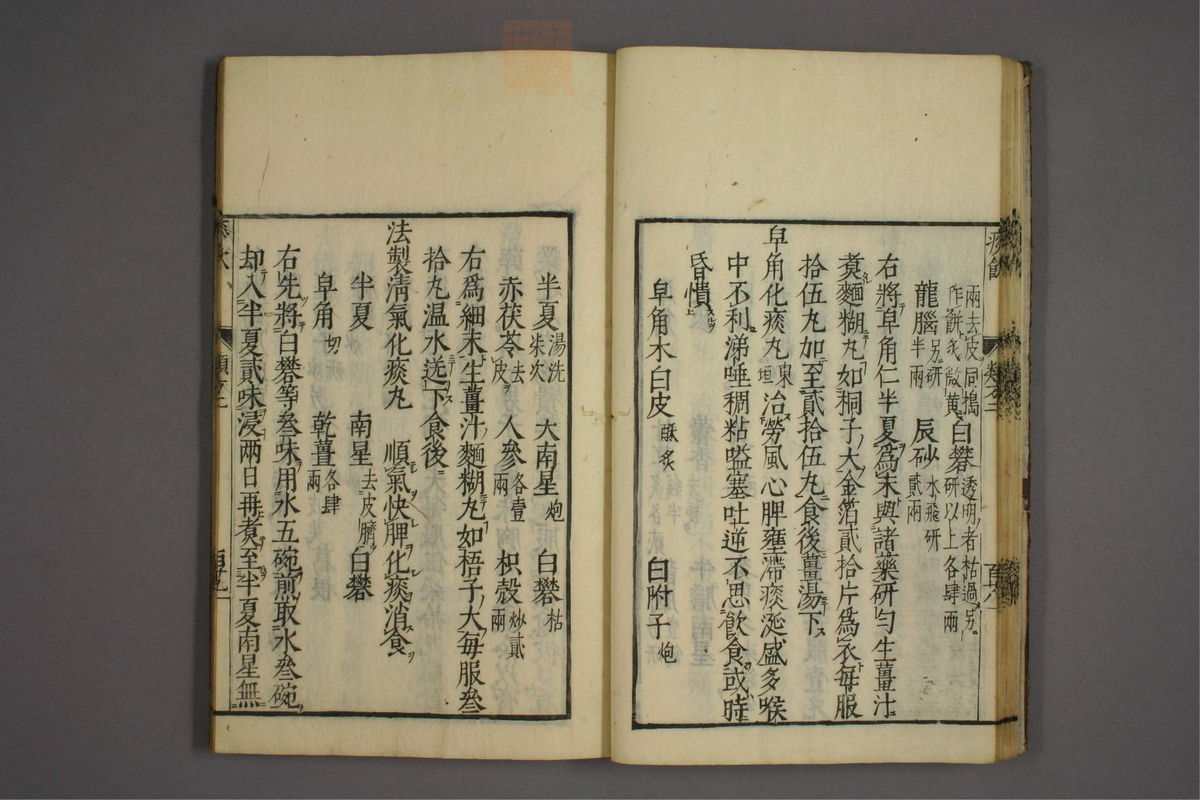 痰飲
兩去皮同搗作餅炙微黃 白礬透明者枯過另研以上各肆兩
龍腦另研半兩 辰砂水飛研貳兩
右將皁角仁半夏爲末與諸藥研勻生薑汁
煑麵糊丸如桐子大金箔貳拾片爲衣每服
拾伍丸加至貳拾伍丸食後薑湯下
皁角化痰丸東垣治勞風心脾壅滯痰涎盛多喉
中不利涕唾稠粘嗌塞吐逆不思飲食或時
昏憒
皁角木白皮酥炙 白附子炮
半夏湯洗柒次 大南星炮 白礬枯
赤茯苓去皮 人參各壹兩 枳殼炒貳兩
右爲細末生薑汁麵糊丸如梧子大每服叄
拾丸温水送下食後
法製清氣化痰丸 順氣快脾化痰消食
半夏 南星去皮臍 白礬
皁角切 乾薑各肆兩
右先將白礬等叄味用水五碗煎取水叄碗
却入半夏貳味浸兩日再煑至半夏南星無